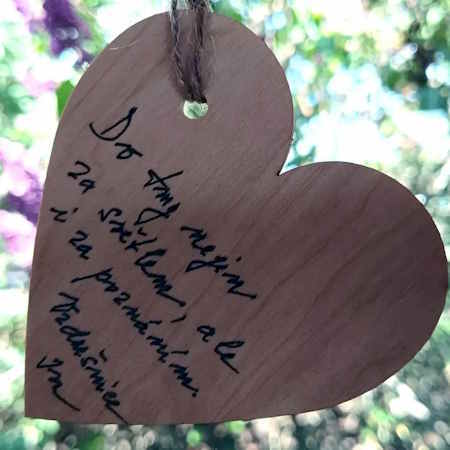 Do tmy nejen
za světlem, ale
i za poznáním.